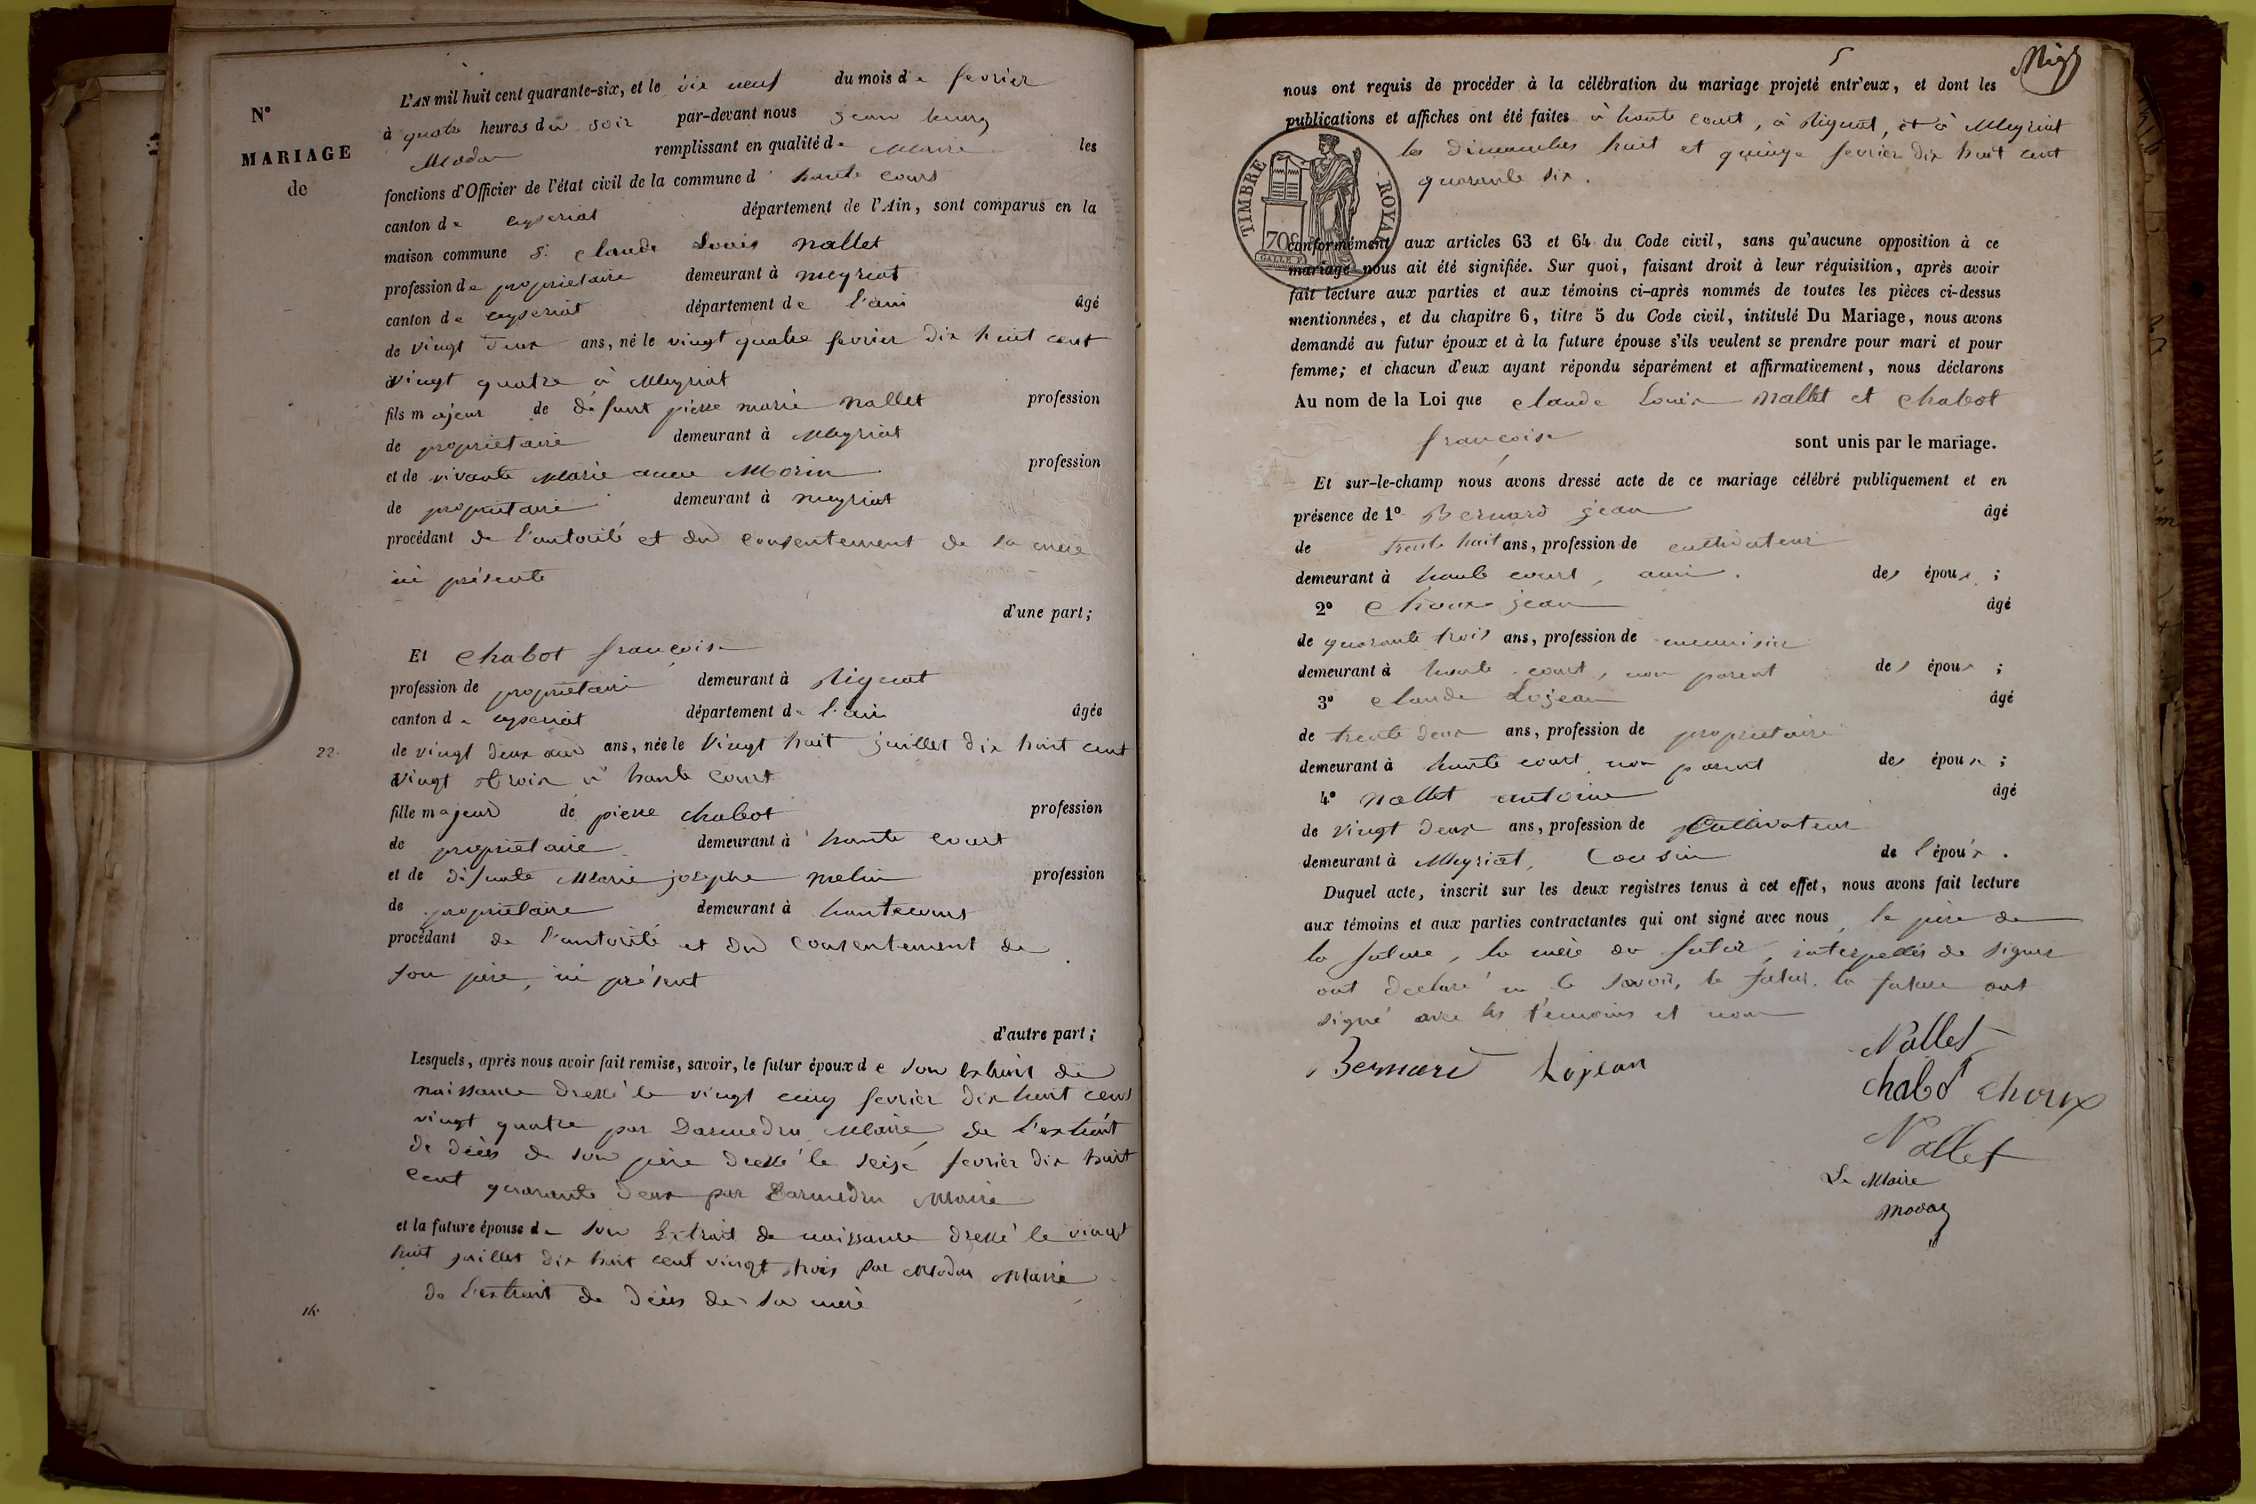 N°
MARIAGE
de
L'AN mil huit cent quarante-six, et le dix neuf du mois de fevrier
à quatre heures du soir par-devant nous jean
remplissant en qualité de Maire les
fonctions d'Officier de l'état civil de la commune d haute court
canton de ceyseriat département de l'Ain, sont comparus en la
maison commune S. Claude Louis Nallet
profession de proprietaire demeurant à meyriat
canton de ceyseriat département de l'ain âgé
de vingt deux ans, né le vingt quatre fevrier dix huit cent
vingt quatre à Meyriat
fils majeur de défunt pierre marie Nallet profession
de propriétaire demeurant à Meyriat
et de vivante Marie anne Morin profession
de propriétaire demeurant à meyriat
procédant de l'autorité et du consentement de sa mere
ici présente
d'une part;
Et Chabot françoise
profession de propriétaire demeurant à Rignat
canton de ceyseriat département de l'ain âgée
22. de vingt deux ans, née le Vingt huit juillet dix huit cent
vingt trois à haute Court
fille majeur de pierre chabot profession
de propriétaire demeurant à haute court
et de défunte Marie josephe melin profession
de propriétaire demeurant à hautecourt
procédant de l'autorité et du consentement de
son père, ici présent
d'autre part;
Lesquels, après nous avoir fait remise, savoir, le futur époux de son extrait de
naissance dressé le vingt cinq fevrier dix huit cent
vingt quatre par Darmedru Maire, de l'extrait
de décès de son père dressé le seize fevrier dix huit
cent quarante deux par Darmedru Maire
et la future épouse de son Extrait de naissance dressé le vingt
huit juillet dix huit cent vingt trois par Modas Maire
de l'extrait de décès de sa mère
5
nous ont requis de procéder à la célébration du mariage projeté entr'eux, et dont les
publications et affiches ont été faites à haute court, à Rignat, et à Meyriat
les dimanches huit et quinze fevrier dix huit cent
quarante six.
TIMBRE ROYAL
70c
conformément aux articles 63 et 64 du Code civil, sans qu'aucune opposition à ce
mariage nous ait été signifiée. Sur quoi, faisant droit à leur réquisition, après avoir
fait lecture aux parties et aux témoins ci-après nommés de toutes les pièces ci-dessus
mentionnées, et du chapitre 6, titre 5 du Code civil, intitulé Du Mariage, nous avons
demandé au futur époux et à la future épouse s'ils veulent se prendre pour mari et pour
femme; et chacun d'eux ayant répondu séparément et affirmativement, nous déclarons
Au nom de la Loi que Claude Louis Nallet et Chabot
françoise sont unis par le mariage.
Et sur-le-champ nous avons dressé acte de ce mariage célébré publiquement et en
présence de 1° Bernard jean âgé
de trente huit ans, profession de cultivateur
demeurant à haute court, ami. des époux;
2° Choux jean âgé
de quarante trois ans, profession de menuisier
demeurant à haute court, non parent des époux;
3° Claude Lojean âgé
de trente deux ans, profession de proprietaire
demeurant à haute court non parent des époux;
4° Nallet antoine âgé
de vingt deux ans, profession de Cultivateur
demeurant à Meyriat, Cousin de l'époux.
Duquel acte, inscrit sur les deux registres tenus à cet effet, nous avons fait lecture
aux témoins et aux parties contractantes qui ont signé avec nous, le père de
la future, la mère du futur, interpellés de signer
ont declaré ne le savoir, le futur, la future ont
signé avec les témoins et nous
Bernard Lojean Nallet
Chabot Choux
Nallet
Le Maire